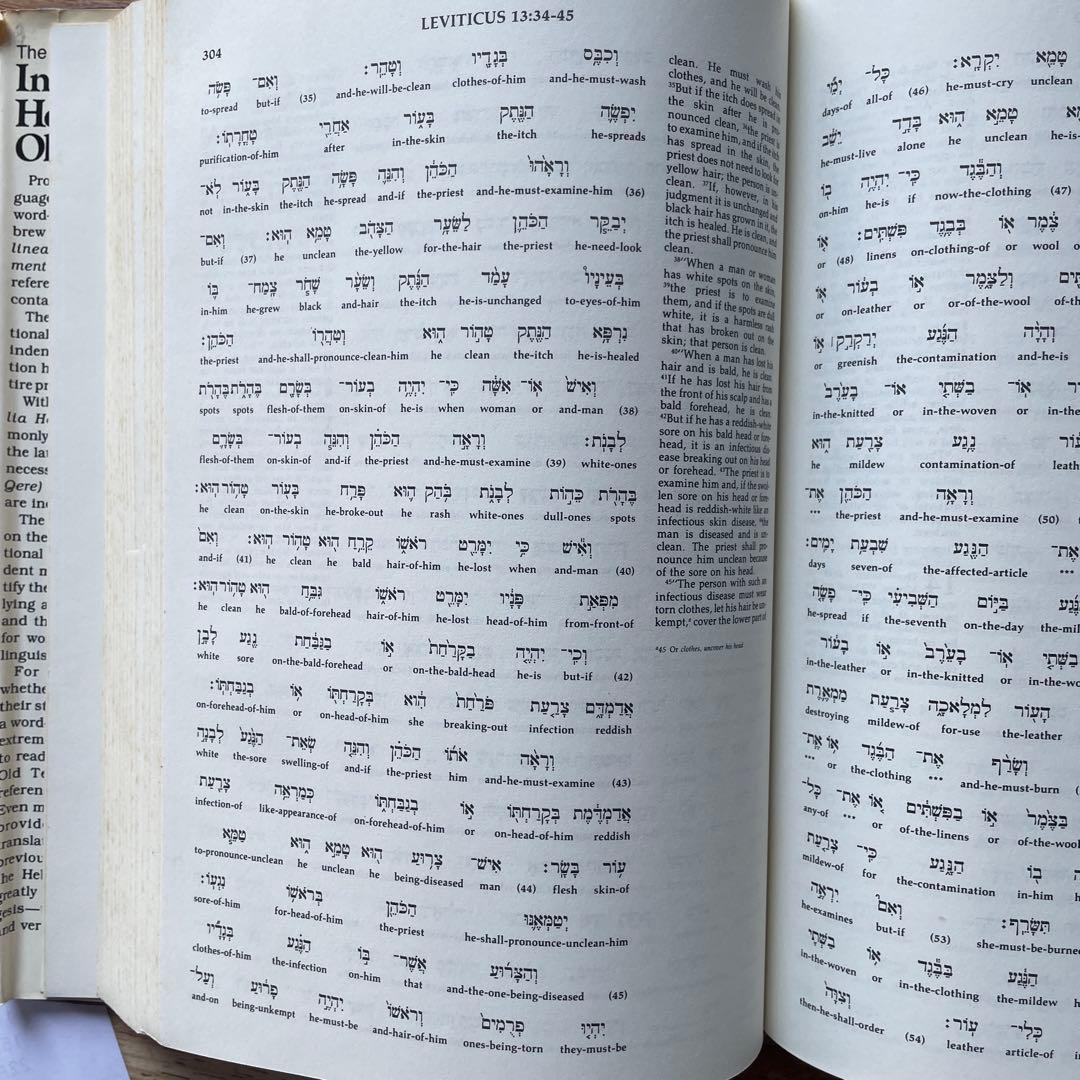 LEVITICUS 13:34-45
304
וְכִבֶּ֥ס בְּגָדָ֖יו וְטָהֵֽר׃ וְאִם־ פָּשֹׂ֥ה
to-spread but-if (35) and-he-will-be-clean clothes-of-him and-he-must-wash
יִפְשֶׂ֛ה הַנֶּ֖תֶק בָּע֑וֹר אַחֲרֵ֖י טָהֳרָתֽוֹ׃
purification-of-him after in-the-skin the-itch he-spreads
וְרָאָ֙הוּ֙ הַכֹּהֵ֔ן וְהִנֵּ֛ה פָּשָׂ֥ה הַנֶּ֖תֶק בָּע֑וֹר לֹֽא־
not in-the-skin the-itch he-spread and-if the-priest and-he-must-examine-him (36)
יְבַקֵּ֧ר הַכֹּהֵ֛ן לַשֵּׂעָ֥ר הַצָּהֹ֖ב טָמֵ֥א הֽוּא׃ וְאִם־
but-if (37) he unclean the-yellow for-the-hair the-priest he-need-look
בְּעֵינָיו֩ עָמַ֨ד הַנֶּ֜תֶק וְשֵׂעָ֨ר שָׁחֹ֧ר צָֽמַח־ בּ֛וֹ
in-him he-grew black and-hair the-itch he-is-unchanged to-eyes-of-him
נִרְפָּ֥א הַנֶּ֖תֶק טָה֣וֹר ה֑וּא וְטִהֲר֖וֹ הַכֹּהֵֽן׃
the-priest and-he-shall-pronounce-clean-him he clean the-itch he-is-healed
וְאִישׁ֙ אֽוֹ־ אִשָּׁ֔ה כִּֽי־ יִהְיֶ֥ה בְעוֹר־ בְּשָׂרָ֖ם בֶּהָרֹ֑ת בֶּהָרֹ֖ת
spots spots flesh-of-them on-skin-of he-is when woman or and-man (38)
לְבָנֹֽת׃ וְרָאָ֣ה הַכֹּהֵ֗ן וְהִנֵּ֧ה בְעוֹר־ בְּשָׂרָ֛ם
flesh-of-them on-skin-of and-if the-priest and-he-must-examine (39) white-ones
בֶּהָרֹ֖ת כֵּה֣וֹת לְבָנֹ֑ת בֹּ֥הַק ה֛וּא פָּרַ֥ח בָּע֖וֹר טָה֥וֹר הֽוּא׃
he clean on-the-skin he-broke-out he rash white-ones dull-ones spots
וְאִ֕ישׁ כִּ֥י יִמָּרֵ֖ט רֹאשׁ֑וֹ קֵרֵ֥חַ ה֖וּא טָה֥וֹר הֽוּא׃ וְאִם֙
and-if (41) he clean he bald hair-of-him he-lost when and-man (40)
מִפְּאַ֣ת פָּנָ֔יו יִמָּרֵ֖ט רֹאשׁ֑וֹ גִּבֵּ֥חַ ה֖וּא טָה֥וֹר הֽוּא׃
he clean he bald-of-forehead hair-of-him he-lost head-of-him from-front-of
וְכִֽי־ יִהְיֶ֤ה בַקָּרַ֙חַת֙ א֣וֹ בַגַּבַּ֔חַת נֶ֖גַע לָבָ֣ן
white sore on-the-bald-forehead or on-the-bald-head he-is but-if (42)
אֲדַמְדָּ֑ם צָרַ֤עַת פֹּרַ֙חַת֙ הִ֔וא בְּקָרַחְתּ֖וֹ א֥וֹ בְגַבַּחְתּֽוֹ׃
on-forehead-of-him or on-head-of-him she breaking-out infection reddish
וְרָאָ֨ה אֹת֜וֹ הַכֹּהֵ֗ן וְהִנֵּ֤ה שְׂאֵת־ הַנֶּ֙גַע֙ לְבָנָ֣ה
white the-sore swelling-of and-if the-priest him and-he-must-examine (43)
אֲדַמְדֶּ֔מֶת בְּקָרַחְתּ֖וֹ א֣וֹ בְגַבַּחְתּ֑וֹ כְּמַרְאֵ֥ה צָרַ֖עַת
infection-of like-appearance-of on-forehead-of-him or on-head-of-him reddish
ע֥וֹר בָּשָֽׂר׃ אִישׁ־ צָר֥וּעַ ה֖וּא טָמֵ֣א ה֑וּא טַמֵּ֧א
to-pronounce-unclean he unclean he being-diseased man (44) flesh skin-of
יְטַמְּאֶ֛נּוּ הַכֹּהֵ֖ן בְּרֹאשׁ֥וֹ נִגְעֽוֹ׃
sore-of-him for-head-of-him the-priest he-shall-pronounce-unclean-him
וְהַצָּר֜וּעַ אֲשֶׁר־ בּ֣וֹ הַנֶּ֗גַע בְּגָדָ֞יו
clothes-of-him the-infection on-him that and-the-one-being-diseased (45)
יִהְי֤וּ פְרֻמִים֙ וְרֹאשׁוֹ֙ יִהְיֶ֣ה פָר֔וּעַ וְעַל־
and-on being-unkempt he-must-be and-hair-of-him ones-being-torn they-must-be
clean. He must wash his
clothes, and he will be clean.
35But if the itch does spread in
the skin after he is pro-
nounced clean, 36the priest is
to examine him, and if the itch
has spread in the skin, the
priest does not need to look for
yellow hair; the person is un-
clean. 37If, however, in his
judgment it is unchanged and
black hair has grown in it, the
itch is healed. He is clean, and
the priest shall pronounce him
clean.
38"When a man or woman
has white spots on the skin,
39the priest is to examine
them, and if the spots are dull
white, it is a harmless rash
that has broken out on the
skin; that person is clean.
40"When a man has lost his
hair and is bald, he is clean.
41If he has lost his hair from
the front of his scalp and has a
bald forehead, he is clean.
42But if he has a reddish-white
sore on his bald head or fore-
head, it is an infectious dis-
ease breaking out on his head
or forehead. 43The priest is to
examine him and, if the swol-
len sore on his head or fore-
head is reddish-white like an
infectious skin disease, 44the
man is diseased and is un-
clean. The priest shall pro-
nounce him unclean because
of the sore on his head.
45"The person with such an
infectious disease must wear
torn clothes, let his hair be un-
kempt, cover the lower part of
45 Or clothes, uncover his head
טָמֵ֥א יִקְרָֽא׃ כָּל־ יְמֵ֞י
days-of all-of (46) he-must-cry unclean
טָמֵ֣א ה֑וּא בָּדָ֣ד יֵשֵׁ֔ב
he-must-live alone he unclean he-is
וְהַבֶּ֕גֶד כִּֽי־ יִהְיֶ֥ה ב֖וֹ
on-him he-is if now-the-clothing (47)
צֶ֔מֶר א֖וֹ בְּבֶ֥גֶד פִּשְׁתִּֽים׃ א֤וֹ
or (48) linens on-clothing-of or wool
וְלַצָּ֑מֶר א֣וֹ בְע֔וֹר א֖וֹ
or on-leather or or-of-the-wool
וְהָיָ֨ה הַנֶּ֜גַע יְרַקְרַ֣ק א֣וֹ
or greenish the-contamination and-he-is
אֽוֹ־ בַשְּׁתִ֤י אֽוֹ־ בָעֵ֙רֶב֙
in-the-knitted or in-the-woven or
נֶ֥גַע צָרַ֖עַת ה֑וּא
he mildew contamination-of
וְרָאָ֥ה הַכֹּהֵ֖ן אֶת־
*** the-priest and-he-must-examine (50)
הַנֶּ֖גַע שִׁבְעַ֥ת יָמִֽים׃
days seven-of the-affected-article ***
בַּיּ֣וֹם הַשְּׁבִיעִ֗י כִּֽי־ פָשָׂ֤ה
he-spread if the-seventh on-the-day
בַשְּׁתִ֥י אֽוֹ־ בָעֵ֙רֶב֙ א֣וֹ בָע֔וֹר
in-the-leather or in-the-knitted or
הָע֖וֹר לִמְלָאכָ֑ה צָרַ֧עַת מַמְאֶ֛רֶת
destroying mildew-of for-use the-leather
וְשָׂרַ֨ף אֶת־ הַבֶּ֜גֶד א֥וֹ אֶֽת־
*** or the-clothing *** and-he-must-burn
בַּצֶּ֙מֶר֙ א֣וֹ בַפִּשְׁתִּ֔ים א֚וֹ אֶת־ כָּל־
any-of *** or of-the-linens or
ב֖וֹ הַנָּ֑גַע כִּֽי־ צָרַ֤עַת
mildew-of for the-contamination in-him
תִּשָּׂרֵֽף׃ וְאִם֮ יִרְאֶ֣ה
he-examines but-if (53)
הַנֶּ֔גַע בַּבֶּ֕גֶד א֥וֹ בַשְּׁתִ֖י
in-the-woven or in-the-clothing the-mildew
כְּלִי־ עֽוֹר׃ וְצִוָּה֙
then-he-shall-order (54) leather article-of
The
Pro
The
With
Qere)
are in
The
on the
For